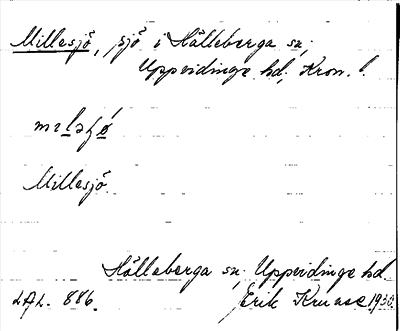 Millesjö, sjö i Hälleberga sn,
Uppvidinge hd, Kron. l.
Millesjö.
Hälleberga sn, Uppvidinge hd
LAL. 886. Erik Kruuse 1930.